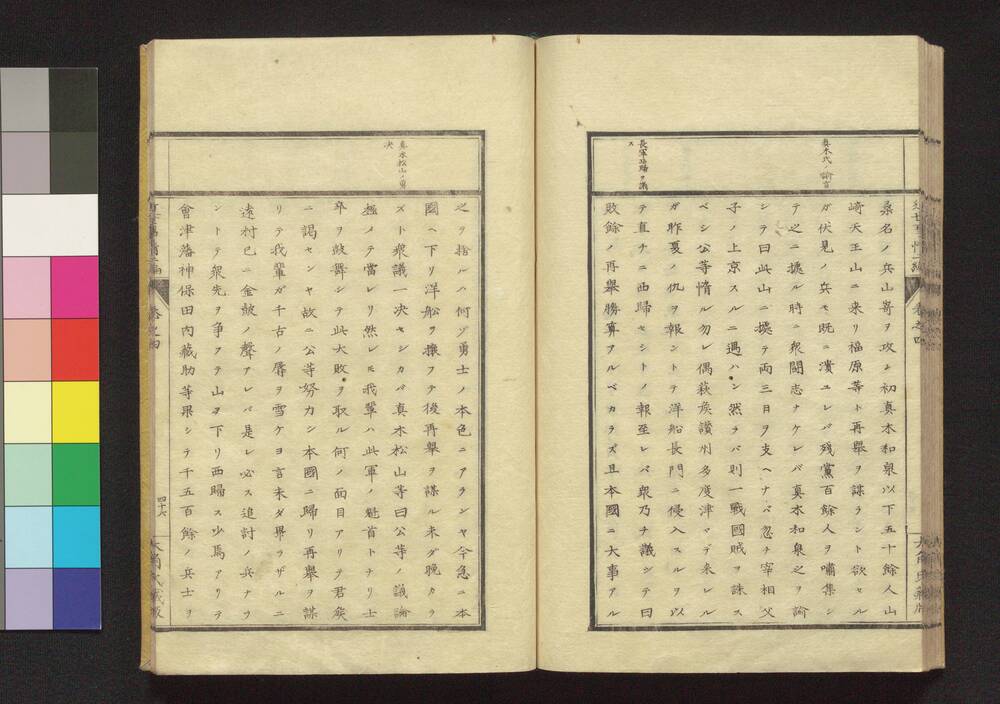 真木氏ノ諭言
長軍西歸ヲ議
ス
桑名ノ兵山寄ヲ攻ム初真木和泉以下五十餘人山
崎天王山ニ来リ福原等ト再舉ヲ謀ラント欲セル
ガ伏見ノ兵モ既ニ潰ユレバ殘黨百餘人ヲ嘯集シ
テ之ニ據ル時ニ衆鬪志ナケレバ真木和泉之ヲ諭
シテ曰此山ニ據テ両三日ヲ支ヘナバ忽チ宰相父
子ノ上京スルニ遇ハン然ラバ則一戰國賊ヲ誅ス
ベシ公等惰ル勿レ偶萩矦讃州多度津マデ来レル
ガ昨夏ノ仇ヲ報ントテ洋船長門ニ侵入スルヲ以
テ直チニ西歸セシトノ報至レバ衆乃チ議シテ曰
敗餘ノ再舉勝算ヲルベカラズ且本國ニ大事アル
真木松山ノ勇
决
之ヲ捨ルハ何ゾ勇士ノ本色ニアランヤ今急ニ本
國ヘ下リ洋船ヲ攘フテ後再舉ヲ謀ル未ダ晩カラ
ズト衆議一决セシカバ真木松山等曰公等ノ議論
極メテ當レリ然レモ我輩ハ此軍ノ魁首トナリ士
卒ヲ鼓舞シテ此大敗ヲ取ル何ノ面目アリテ君矦
ニ謁センヤ故ニ公等努力シ本國ニ歸リ再舉ヲ謀
リテ我輩ガ千古ノ辱ヲ雪ケヨ言未ダ畢ラザルニ
遠村已ニ金皷ノ聲アレバ是レ必ス追討ノ兵ナラ
ントテ衆先ヲ争ヲテ山ヲ下リ西歸ス少焉アリテ
會津藩神保田内藏助等畢シテ千五百餘ノ兵士ヲ
卷之四
四十六